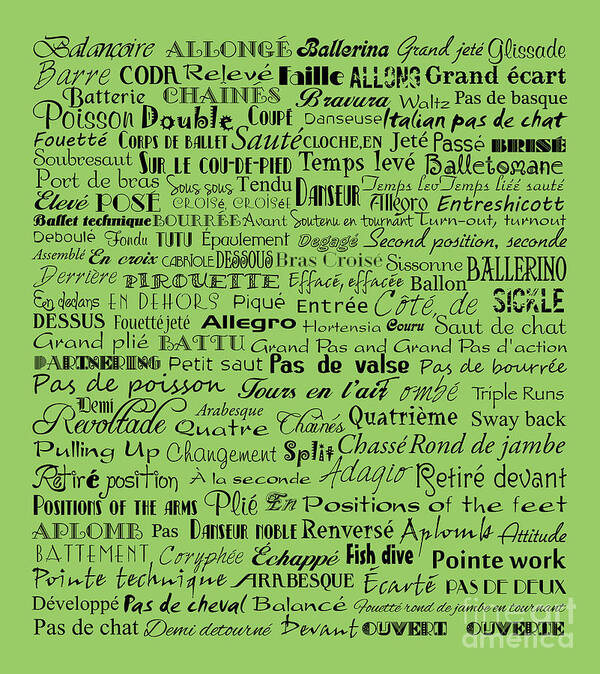 Balançoire ALLONGÉ Ballerina Grand jeté Glissade
Barre CODA Relevé Faille ALLONG Grand écart
Batterie CHAINES Bravura Waltz Pas de basque
Poisson Double COUPÉ Danseuse Italian pas de chat
Fouetté CORPS DE BALLET Sauté CLOCHE,EN Jeté Passé BRISÉ
Soubresaut SUR LE COU-DE-PIED Temps levé Balletomane
Port de bras Sous sous Tendu DANSEUR Temps lev Temps liéé sauté
Elevé POSÉ CROISÉ, CROISÉE Allegro Entreshicott
Ballet technique BOURRÉE Avant Soutenu en tournant Turn-out, turnout
Deboulé Fondu TUTU Épaulement Degagé Second position, seconde
Assemblé En croix CABRIOLE DESSOUS Bras Croisé Sissonne BALLERINO
Derrière PIROUETTE Effacé, effacée Ballon
En declans EN DEHORS Piqué Entrée Côté, de SICKLE
DESSUS Fouetté jeté Allegro Hortensia Couru Saut de chat
Grand plié BATTU Grand Pas and Grand Pas d'action
PARTNERING Petit saut Pas de valse Pas de bourrée
Pas de poisson Tours en l'air ombé Triple Runs
Demi Revoltade Quatre Arabesque Chaînés Quatrième Sway back
Pulling Up Changement Split Chassé Rond de jambe
Retiré position À la seconde Adagio Retiré devant
POSITIONS OF THE ARMS Plié En Positions of the feet
APLOMB Pas DANSEUR NOBLE Renversé Aplomb Attitude
BATTEMENT Coryphée Echappé Fish dive Pointe work
Pointe technique ARABESQUE Écarté PAS DE DEUX
Développé Pas de cheval Balancé Fouetté rond de jambe en tournant
Pas de chat Demi detourné Devant OUVERT OUVERTE
fine art america